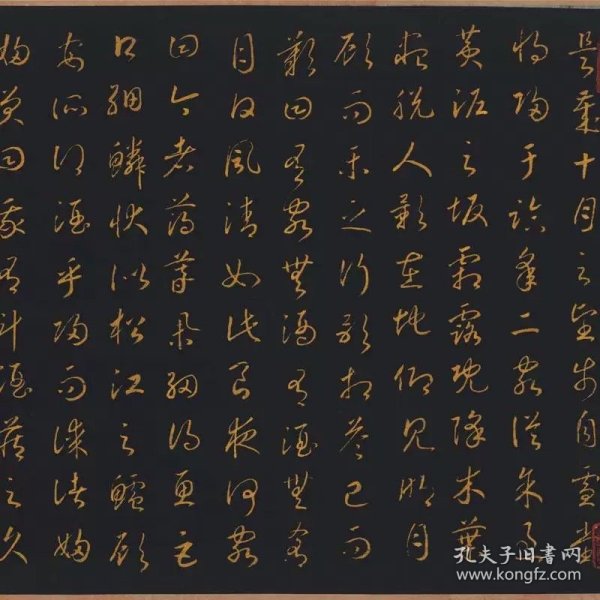 是歲十月之望步自雪堂
將歸于臨皋二客從予過
黃泥之坂霜露既降木葉
盡脫人影在地仰見明月
顧而樂之行歌相答已而
歎曰有客無酒有酒無肴
月白風清如此良夜何客
曰今者薄暮舉網得魚巨
口細鱗狀似松江之鱸顧
安所得酒乎歸而謀諸婦
婦曰我有斗酒藏之久
孔夫子旧书网
www.kongfz.com